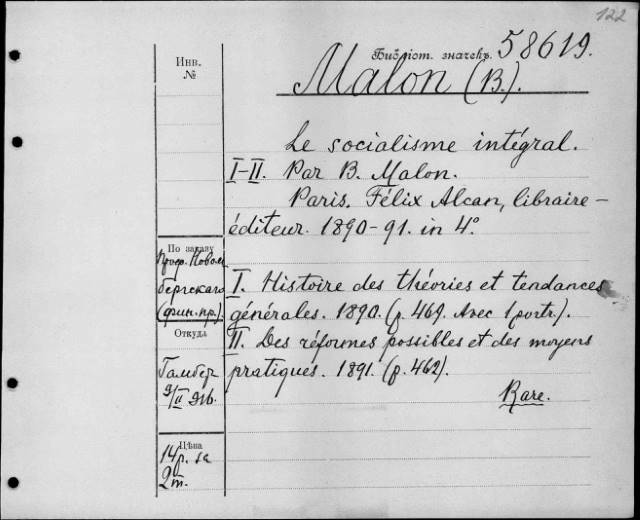 122
Библіот. значекъ. 58619.
Malon (B.).
Инв.
№
Le socialisme intégral.
I-II. Par B. Malon.
Paris. Félix Alcan, libraire-
éditeur. 1890-91. in 4°.
I. Histoire des théories et tendances
générales. 1890. (p. 469. Avec 1 portr.).
II. Des réformes possibles et des moyens
pratiques. 1891. (p. 462).
Rare.
По заказу
проф. Новом
бергскаго
Откуда
Цѣна
14 р. за
2 т.